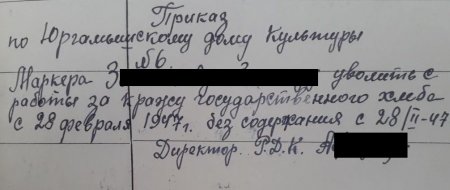 Приказ
по Юргамышскому дому Культуры
№6.
Маркера З уволить с
работы за кражу государственного хлеба
с 28 февраля 1947г. без содержания с 28/II-47
Директор. Р.Д.К. А